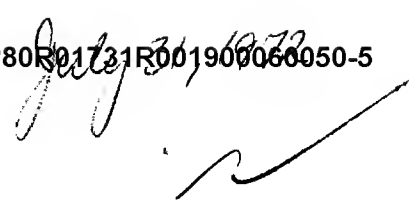 80R01731R001900060050-5
July 31, 1972